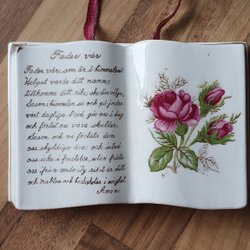 Fader vår
Fader vår, som är i himmelen!
Helgat varde ditt namn;
tillkomme ditt rike; ske din vilja,
såsom i himmelen så ock på jorden;
vårt dagliga bröd giv oss i dag
och förlåt oss våra skulder,
såsom ock vi förlåta dem
oss skyldiga äro; och inled
oss icke i frestelse, utan fräls
oss ifrån ondo. Ty riket är ditt
och makten och härligheten i evighet.
Amen.